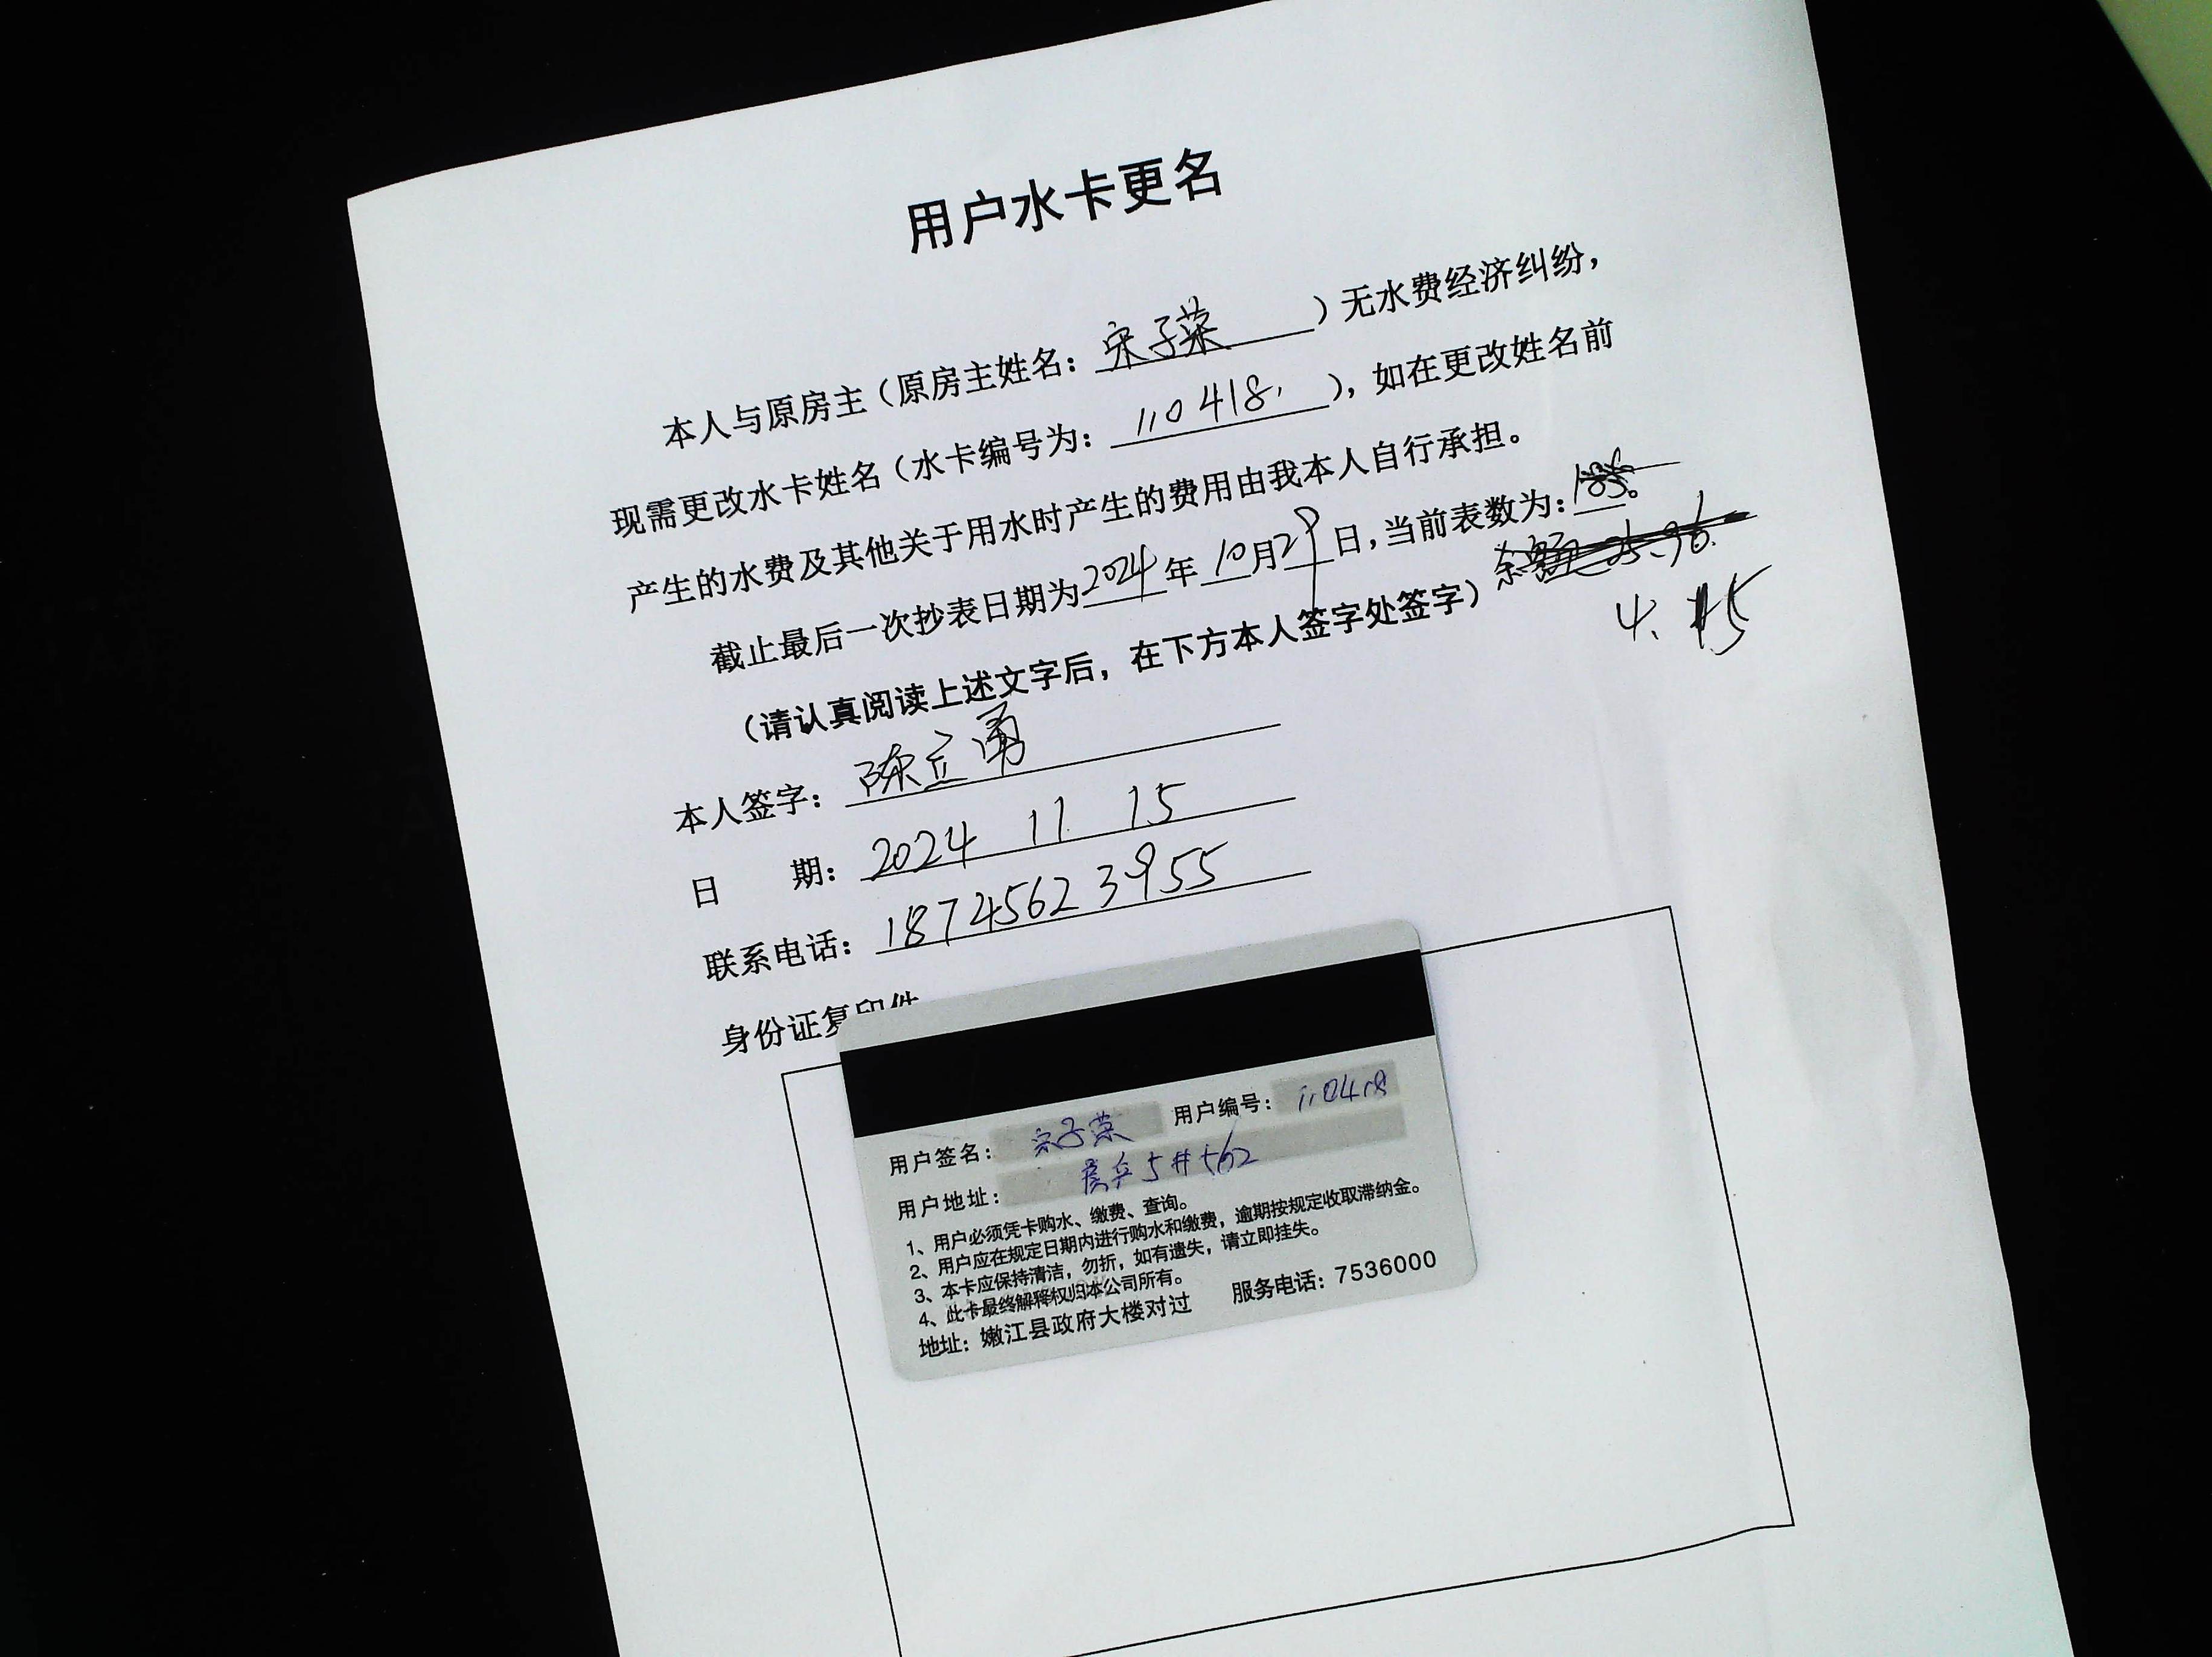 用户水卡更名
本人与原房主（原房主姓名：宋子荣）无水费经济纠纷，
现需更改水卡姓名（水卡编号为：110418），如在更改姓名前
产生的水费及其他关于用水时产生的费用由我本人自行承担。
截止最后一次抄表日期为2024年10月29日，当前表数为：
（请认真阅读上述文字后，在下方本人签字处签字）
本人签字：陈立勇
日期：2024 11 15
联系电话：18745623955
身份证复印件
用户签名：宋子荣 用户编号：110418
用户地址：
1、用户必须凭卡购水、缴费、查询。
2、用户应在规定日期内进行购水和缴费，逾期按规定收取滞纳金。
3、本卡应保持清洁，勿折，如有遗失，请立即挂失。
4、此卡最终解释权归本公司所有。
地址：嫩江县政府大楼对过 服务电话：7536000